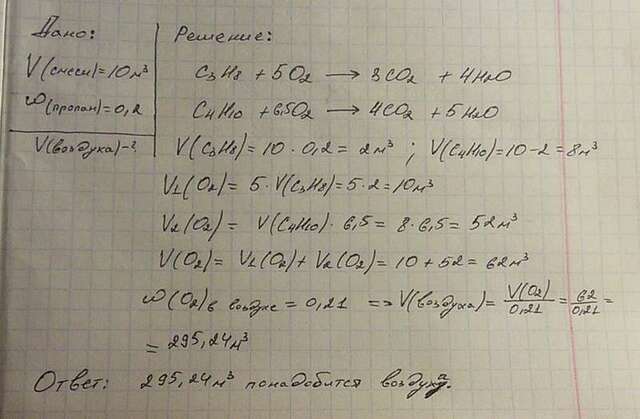 Дано:
V(смеси)=10м³
ω(пропан)=0,2
V(воздуха)-?
Решение:
C3H8 + 5O2 → 3CO2 + 4H2O
C4H10 + 6,5O2 → 4CO2 + 5H2O
V(C3H8) = 10 · 0,2 = 2м³ ; V(C4H10)=10-2=8м³
V1(O2) = 5 · V(C3H8)=5·2=10м³
V2(O2) = V(C4H10) · 6,5 = 8·6,5 = 52м³
V(O2) = V1(O2) + V2(O2) = 10 + 52 = 62м³
ω(O2)в воздухе = 0,21 => V(воздуха) = V(O2)/0,21 = 62/0,21 =
= 295,24м³
Ответ: 295,24м³ понадобится воздуха.